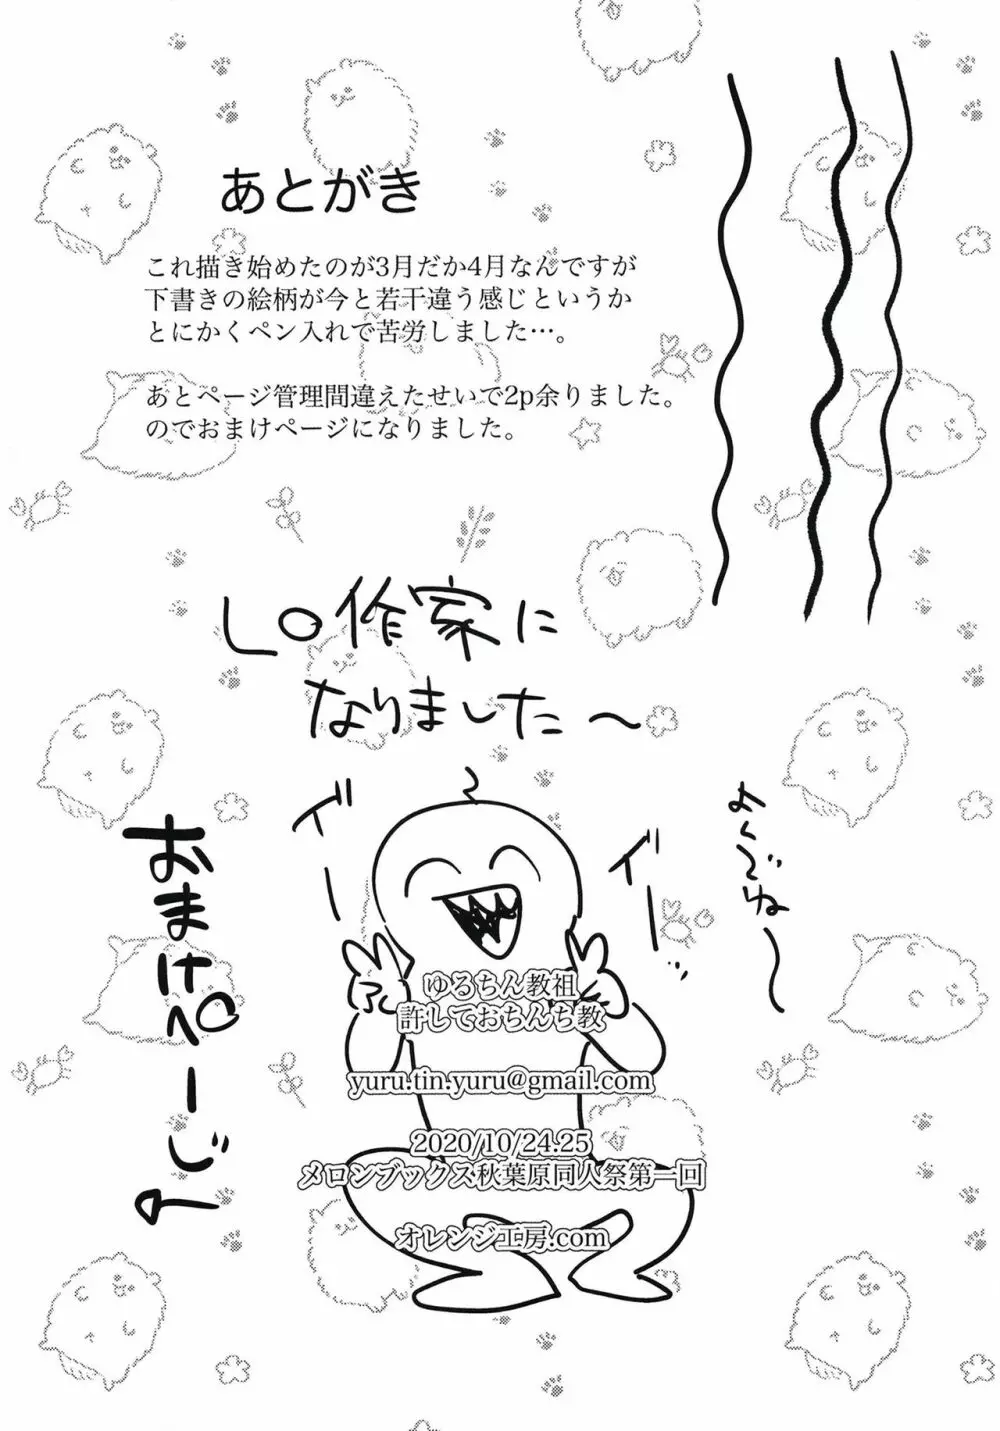 あとがき
これ描き始めたのが3月だか4月なんですが
下書きの絵柄が今と若干違う感じというか
とにかくペン入れで苦労しました…。
あとページ管理間違えたせいで2p余りました。
のでおまけページになりました。
LO作家に
なりました〜
イ゛ー
イ゛ー…
よんでね〜
おまけペーじ
ゆるちん教祖
許しておちんち教
yuru.tin.yuru@gmail.com
2020/10/24.25
メロンブックス秋葉原同人祭第一回
オレンジ工房.com